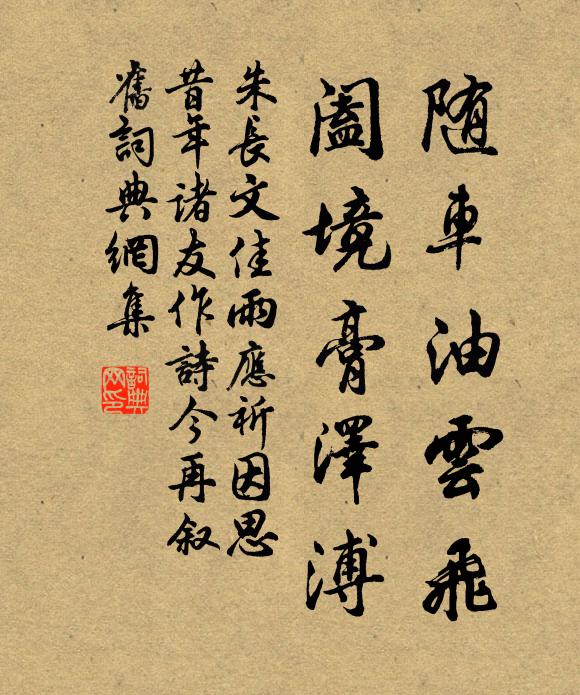 随車油雲飛
闔境膏澤溥
朱長文佳雨應祈因思
昔年諸友作詩今再叙
舊詞典網集
詞典
网印